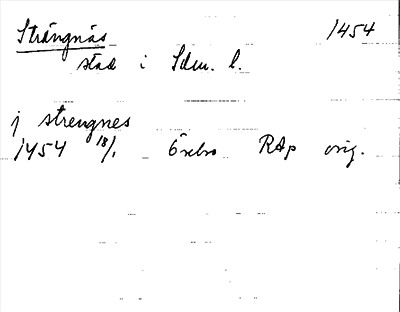 Strängnäs 1454
stad i Sdm. l.
j strengnes
1454 18/1. Örebro RAp orig.